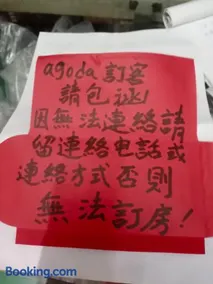 agoda 訂客
請包涵!
因無法連絡請
留連絡电話或
連絡方式否則
無法訂房!
Booking.com